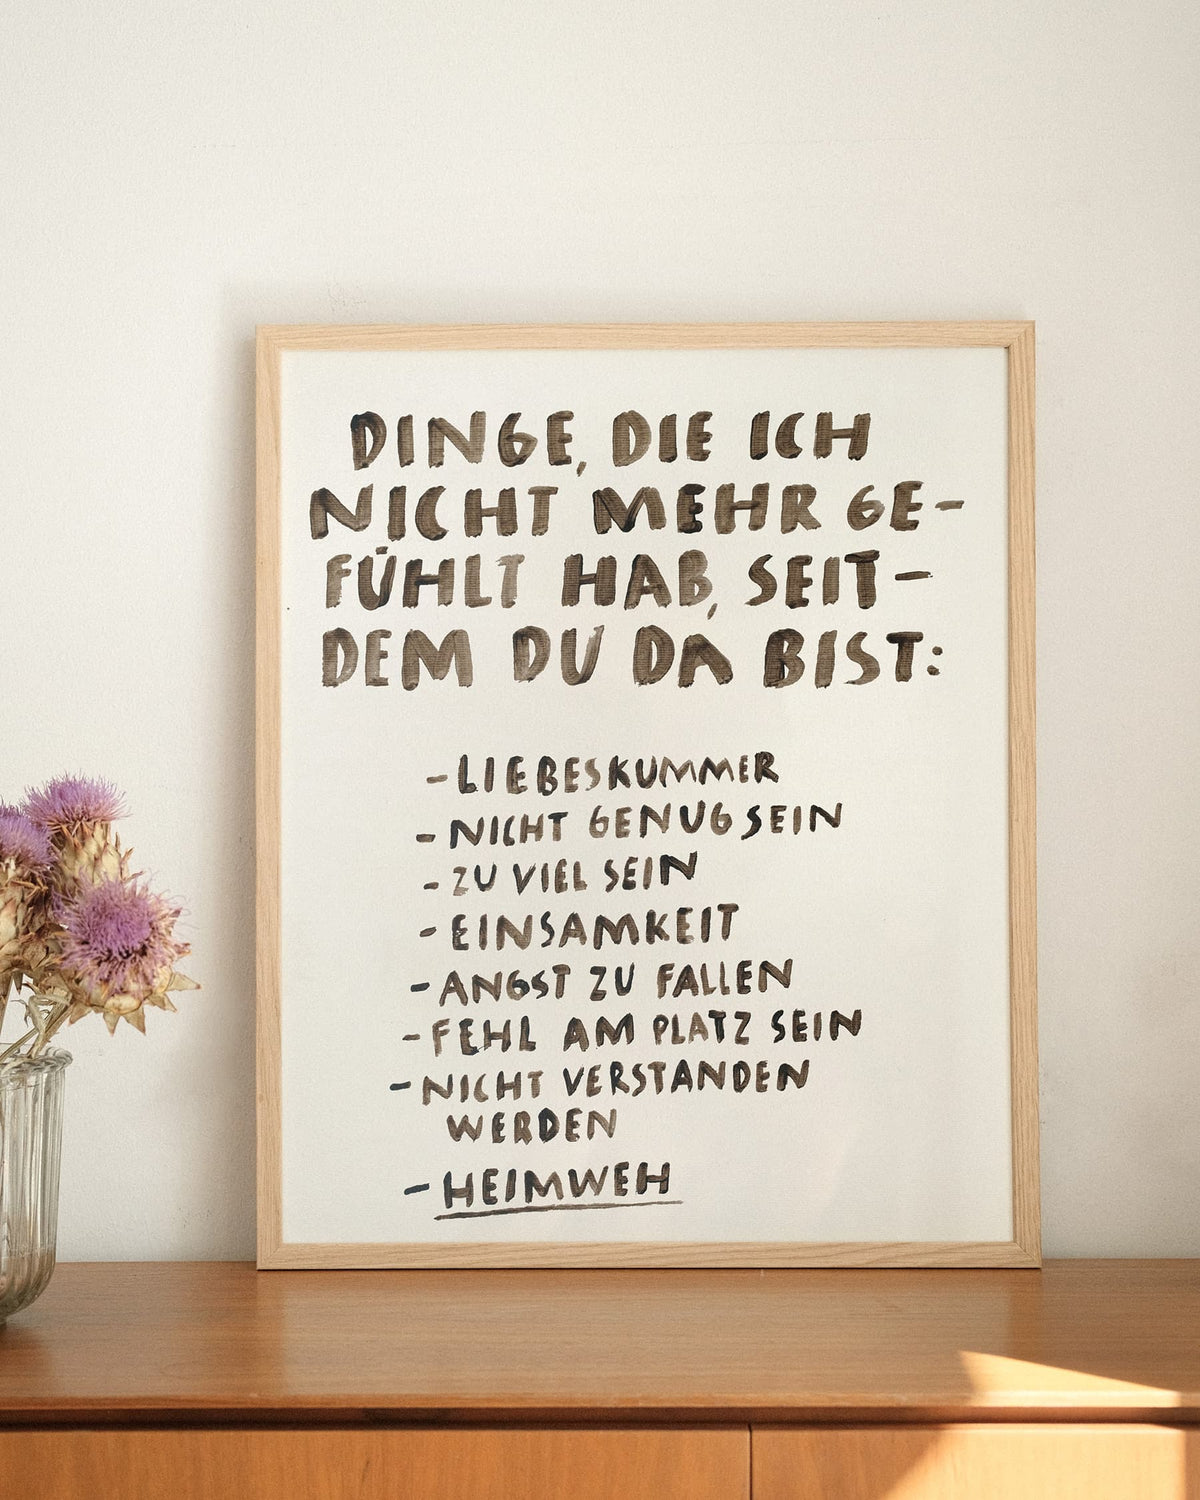 DINGE, DIE ICH
NICHT MEHR GE-
FÜHLT HAB, SEIT-
DEM DU DA BIST:
- LIEBESKUMMER
- NICHT GENUG SEIN
- ZU VIEL SEIN
- EINSAMKEIT
- ANGST ZU FALLEN
- FEHL AM PLATZ SEIN
- NICHT VERSTANDEN
WERDEN
- HEIMWEH